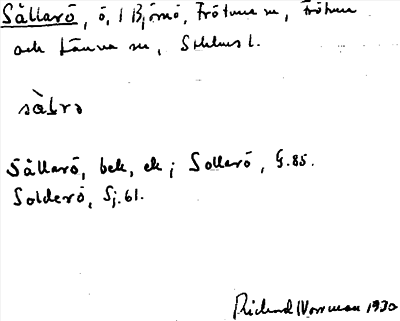 Sållarö, ö, i Björnö, Frötuna sn, Frötuna
och Länna sn, Sthlms l.
sàLrə
Sållarö, bek, ek; Sollarö, G. 85.
Solderö, Sj. 61.
Richard Norrman 1930